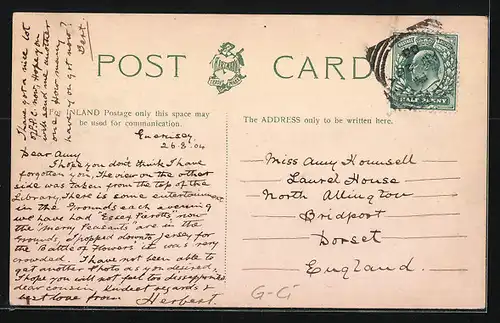 POST CARD
FOR INLAND Postage only this space may
be used for communication.
The ADDRESS only to be written here.
HALF PENNY
I have got a nice lot
of P.P.C. now, hope you
will send me another
once. How many
have you got now?
Bert.
Guernsey
26.8.04
Dear Amy
I hope you don't think I have
forgotten you, The view on the other
side was taken from the top of the
Library, There is some entertainment
in the Grounds each evening
we have had "Essex Pierrots" now
the "Merry Peasants" are in the
Grounds, I popped down to Jersey for
the "Battle of Flowers" it was very
crowded. I have not been able to
get another Photo as you desired,
I hope you will not feel too disappointed
dear cousin, Kindest regards &
best love from Herbert.
Miss Amy Hounsell
Laurel House
North Allington
Bridport
Dorset
England.
G-Ci